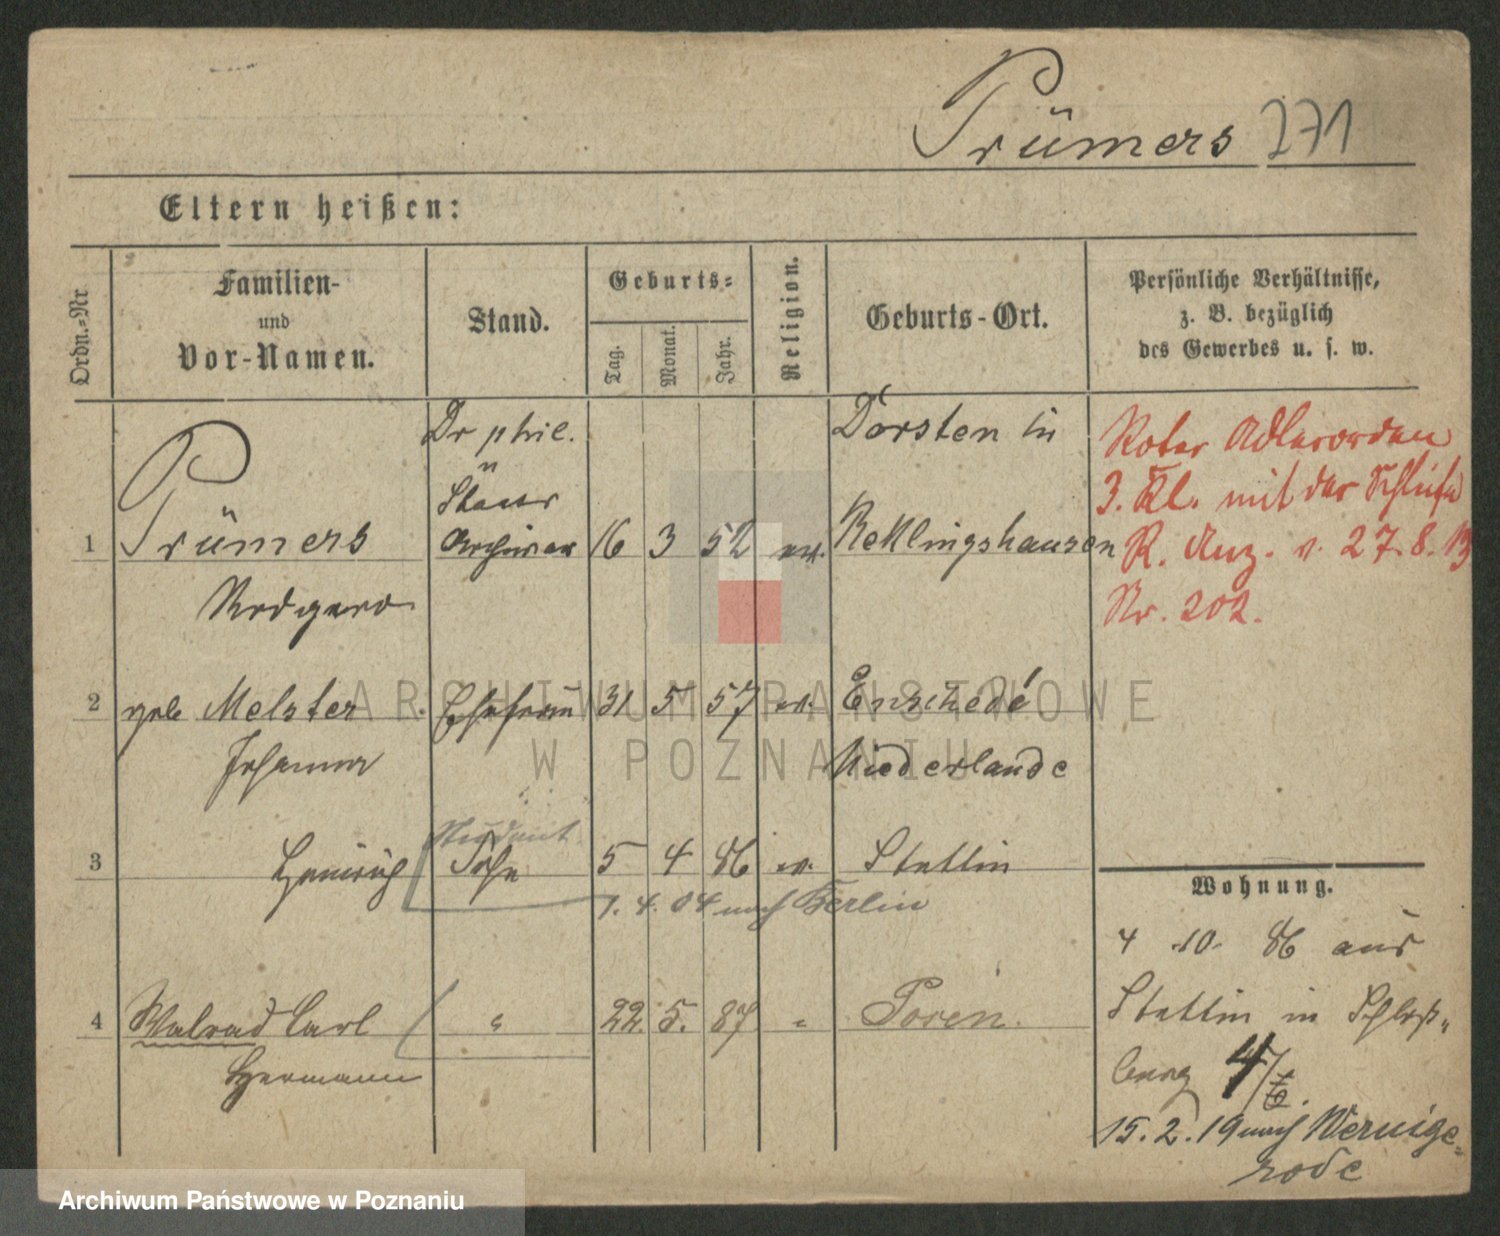 Prümers 271
Eltern heißen:
Ordn.=Nr.
Familien-
und
Vor-Namen.
Stand.
Geburts=
Tag.
Monat.
Jahr.
Religion.
Geburts-Ort.
Persönliche Verhältnisse,
z. B. bezüglich
des Gewerbes u. s. w.
1
Prümers
Rodgero
Dr phil.
u
Staats
Archivar
16 3 52 ev.
Dorsten in
Reklingshausen
Roter Adlerorden
3. Kl. mit der Schleife
R. Anz. v. 27.8.13
Nr. 202.
2
geb Melster
Johanna
Ehefrau
31 5 57 ev.
Enschede
Niederlande
3
Heinrich
Student
Sohn
5 4 86 ev.
Stettin
1. 4. 04 nach Berlin
4
Walrad Carl
Hermann
"
22 5. 87 "
Posen.
Wohnung.
4 10. 86 aus
Stettin in Schloß„
berg 4/6.
15. 2. 19 nach Wernige=
rode
ARCHIWUM PAŃSTWOWE
W POZNANIU
Archiwum Państwowe w Poznaniu